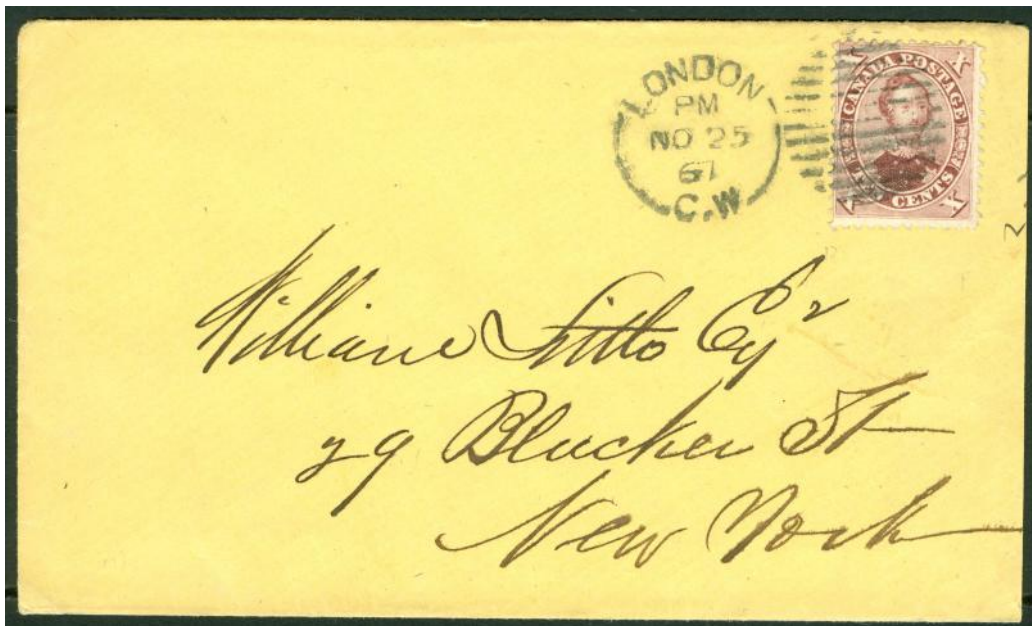 LONDON
PM
NO 25
67
C.W
X X
CANADA POSTAGE
CENTS X
William Sitto Esqr
29 Blucker St
New York
2